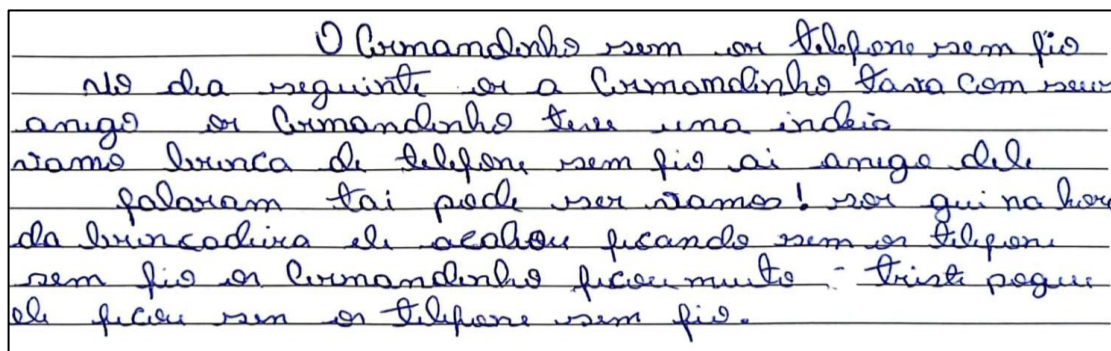 O Armandinho sem or telefone sem fio
No dia seguinte or a Armandinho tava com seus
amigo or Armandinho teve uma indeia
vamo brinca de telefone sem fio ai amigo dele
falaram tai pode ser vamos! sor qui na hora
da brincadeira ele acabou ficando sem or telefone
sem fio or Armandinho ficou muito triste pogue
ele ficou sem or telefone sem fio.